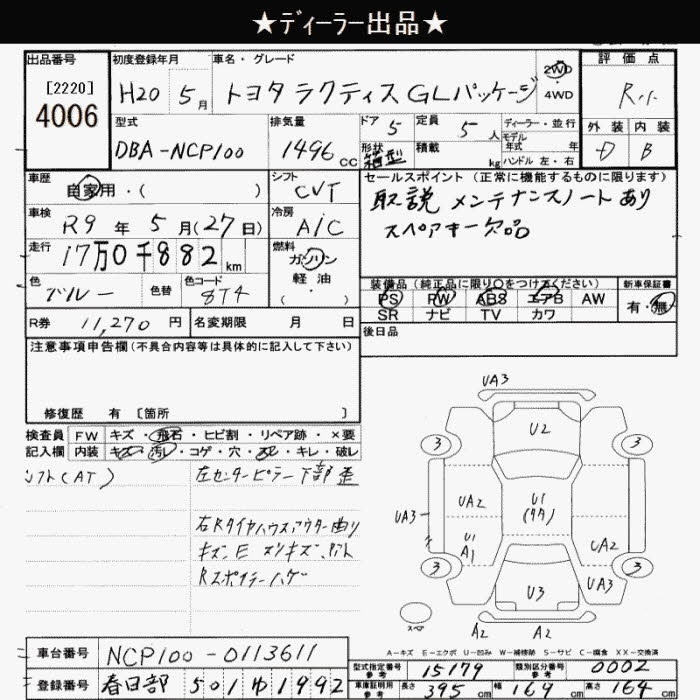 ★ディーラー出品★
出品番号
[2220]
4006
初度登録年月
H20 5月
車名・グレード
トヨタ ラクティス GLパッケージ
2WD
4WD
評価点
R
外装 内装
D B
型式
DBA-NCP100
排気量
1496 CC
ドア 5
形状 箱型
定員 5 人
積載 kg
ディーラー・並行
モデル年式 年
ハンドル 左・右
車歴
自家用・( )
シフト
CVT
セールスポイント (正常に機能するものに限ります)
取説 メンテナンスノートあり
スペアキー欠品
車検
R9年 5月(27日)
冷房
A/C
走行
17万0千882 km
燃料
ガソリン
軽油
( ・ )
色
ブルー
色替
色コード
8T4
装備品 (純正品に限り○をつけてください)
PS PW ABS エアB AW
SR ナビ TV カワ
新車保証書
有・無
R券 11,270 円
名変期限 月 日
後日品
注意事項申告欄 (不具合内容等は具体的に記入して下さい)
修復歴 有 〔箇所 〕
検査員記入欄
FW キズ・飛石・ヒビ割・リペア跡・×要
内装 キズ・汚レ・コゲ・穴・スレ・キレ・破レ
シフト(AT)
左センターピラー下部歪
右Rタイヤハウスアウター曲り
キズ、E スリキズ
Rスポイラーハゲ
UA3
U2
3 3
UA2
U1
UA3
UA2
U1
A1
3 3
UA3
U3
スペア
A2 A2
A-キズ E-エクボ U-凹み W-補修跡 S-サビ C-腐食 XX-交換済
車台番号 NCP100-0113611
登録番号 春日部 501 ゆ 1992
型式指定番号 参考 15179
類別区分番号 参考 0002
車庫証明用 参考 長さ 395 cm 幅 169 cm 高さ 164 cm